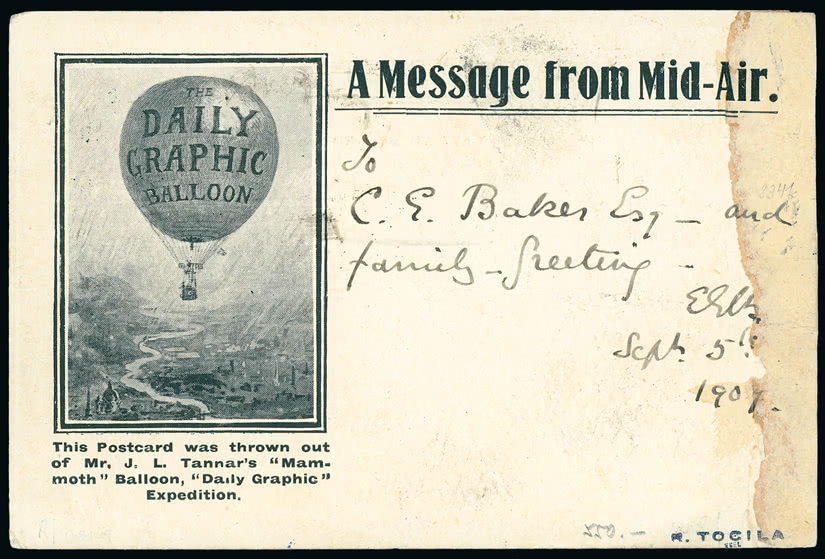 THE
DAILY
GRAPHIC
BALLOON
This Postcard was thrown out
of Mr. J. L. Tannar's "Mam-
moth" Balloon, "Daily Graphic"
Expedition.
A Message from Mid-Air.
To
C. E. Baker Esq – and
family – Greeting –
Sept. 5th
1907.
550.–
R. TOCILA